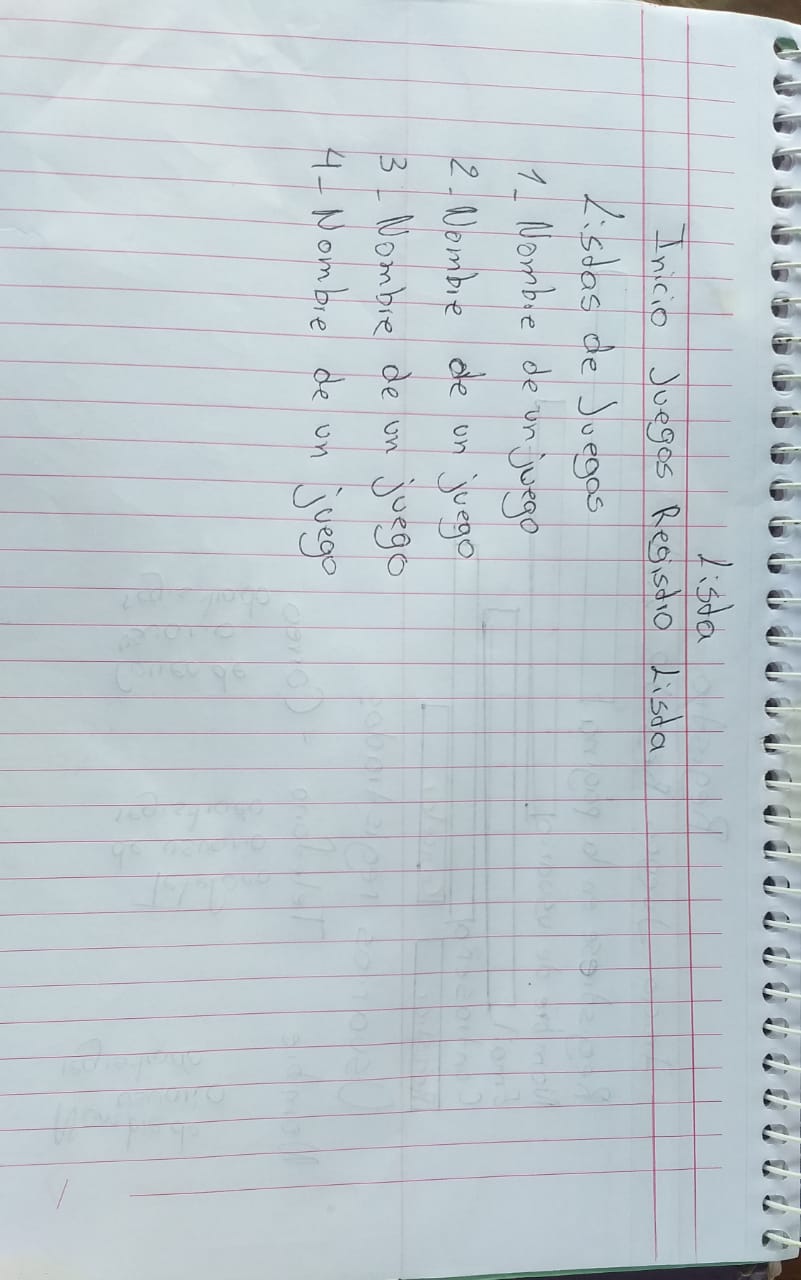 Lista
Inicio Juegos Registro Lista
Listas de Juegos
1- Nombre de un juego
2- Nombre de un juego
3- Nombre de un juego
4- Nombre de un juego